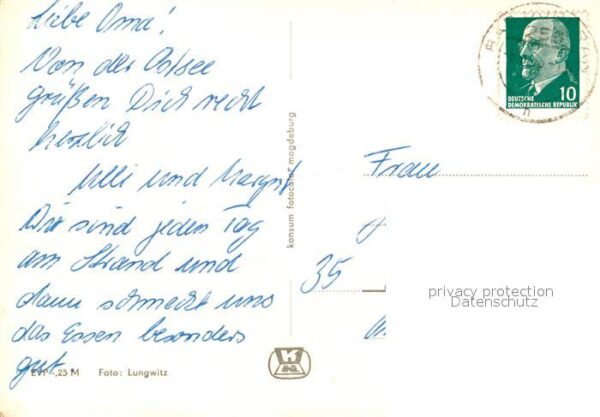 Liebe Oma!
Von der Ostsee
grüßen Dich recht
herzlich
Ulli und Margrit
Wir sind jeden Tag
am Strand und
dann schmeckt uns
das Essen besonders
gut.
EVP -,25 M Foto: Lungwitz
konsum fotocolor magdeburg
10
DEUTSCHE
DEMOKRATISCHE REPUBLIK
Frau
35
privacy protection
Datenschutz